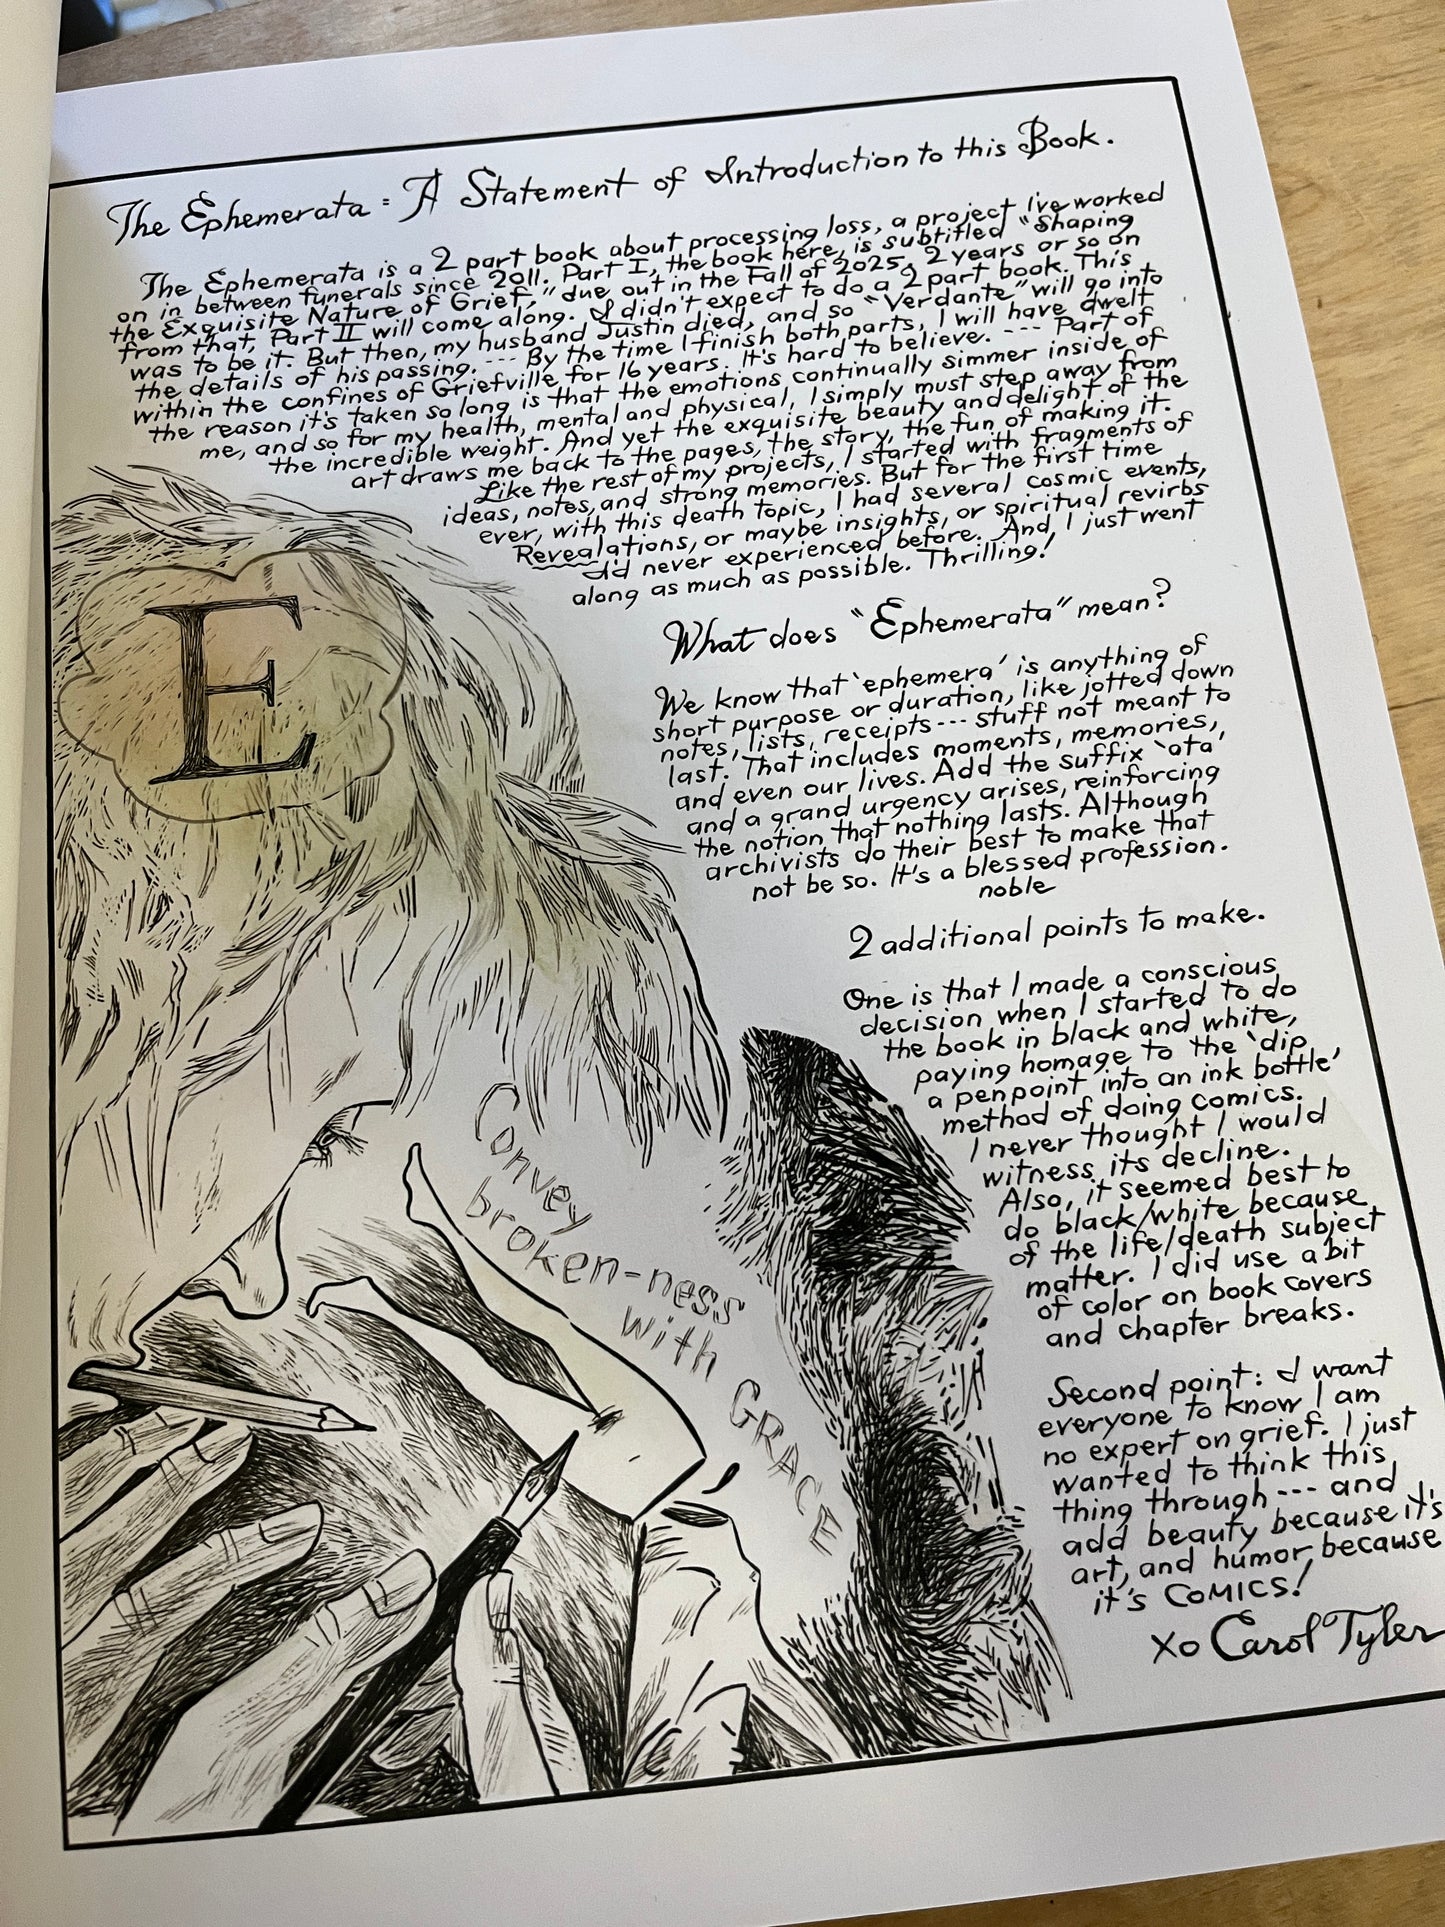 The Ephemerata: A Statement of Introduction to this Book.
The Ephemerata is a 2 part book about processing loss, a project I've worked
on in between funerals since 2011. Part I, the book here, is subtitled "Shaping
the Exquisite Nature of Grief," due out in the Fall of 2025. 2 years or so on
from that, Part II will come along. I didn't expect to do a 2 part book. This
was to be it. But then, my husband Justin died, and so "Verdante" will go into
the details of his passing. --- By the time I finish both parts, I will have dwelt
within the confines of Griefville for 16 years. It's hard to believe. --- Part of
the reason it's taken so long is that the emotions continually simmer inside of
me, and so for my health, mental and physical, I simply must step away from
the incredible weight. And yet the exquisite beauty and delight of the
art draws me back to the pages, the story, the fun of making it.
Like the rest of my projects, I started with fragments of
ideas, notes, and strong memories. But for the first time
ever, with this death topic, I had several cosmic events,
Revealations, or maybe insights, or spiritual revirbs
I'd never experienced before. And, I just went
along as much as possible. Thrilling!
What does "Ephemerata" mean?
We know that 'ephemera' is anything of
short purpose or duration, like jotted down
notes, lists, receipts --- stuff not meant to
last. That includes moments, memories,
and even our lives. Add the suffix 'ata',
and a grand urgency arises, reinforcing
the notion that nothing lasts. Although
archivists do their best to make that
not be so. It's a blessed profession.
noble
2 additional points to make.
One is that I made a conscious
decision when I started to do
the book in black and white,
paying homage to the 'dip
a penpoint into an ink bottle'
method of doing comics.
I never thought I would
witness its decline.
Also, it seemed best to
do black/white because
of the life/death subject
matter. I did use a bit
of color on book covers
and chapter breaks.
Second point: I want
everyone to know I am
no expert on grief. I just
wanted to think this
thing through --- and
add beauty because it's
art, and humor because
it's COMICS!
xo Carol Tyler
E
Convey
broken-ness
with
GRACE